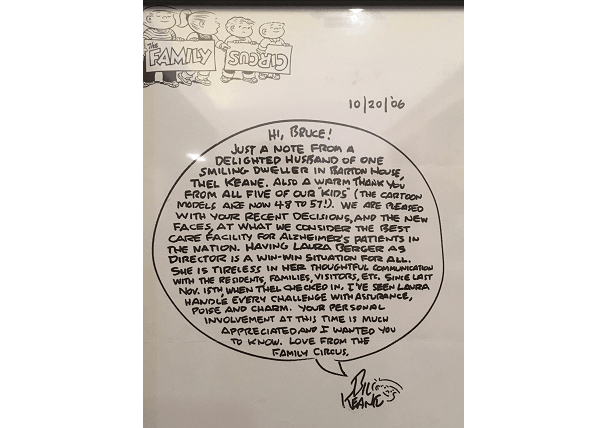 The
FAMILY
CIRCUS
10/20/'06
HI, BRUCE!
JUST A NOTE FROM A
DELIGHTED HUSBAND OF ONE
SMILING DWELLER IN BARTON HOUSE,
THEL KEANE. ALSO A WARM THANK YOU
FROM ALL FIVE OF OUR "KIDS" (THE CARTOON
MODELS ARE NOW 48 TO 57!). WE ARE PLEASED
WITH YOUR RECENT DECISIONS, AND THE NEW
FACES, AT WHAT WE CONSIDER THE BEST
CARE FACILITY FOR ALZHEIMER'S PATIENTS IN
THE NATION. HAVING LAURA BERGER AS
DIRECTOR IS A WIN-WIN SITUATION FOR ALL.
SHE IS TIRELESS IN HER THOUGHTFUL COMMUNICATION
WITH THE RESIDENTS, FAMILIES, VISITORS, ETC. SINCE LAST
NOV. 15TH, WHEN THEL CHECKED IN, I'VE SEEN LAURA
HANDLE EVERY CHALLENGE WITH ASSURANCE,
POISE AND CHARM. YOUR PERSONAL
INVOLVEMENT AT THIS TIME IS MUCH
APPRECIATED AND I WANTED YOU
TO KNOW. LOVE FROM THE
FAMILY CIRCUS,
BIL
KEANE